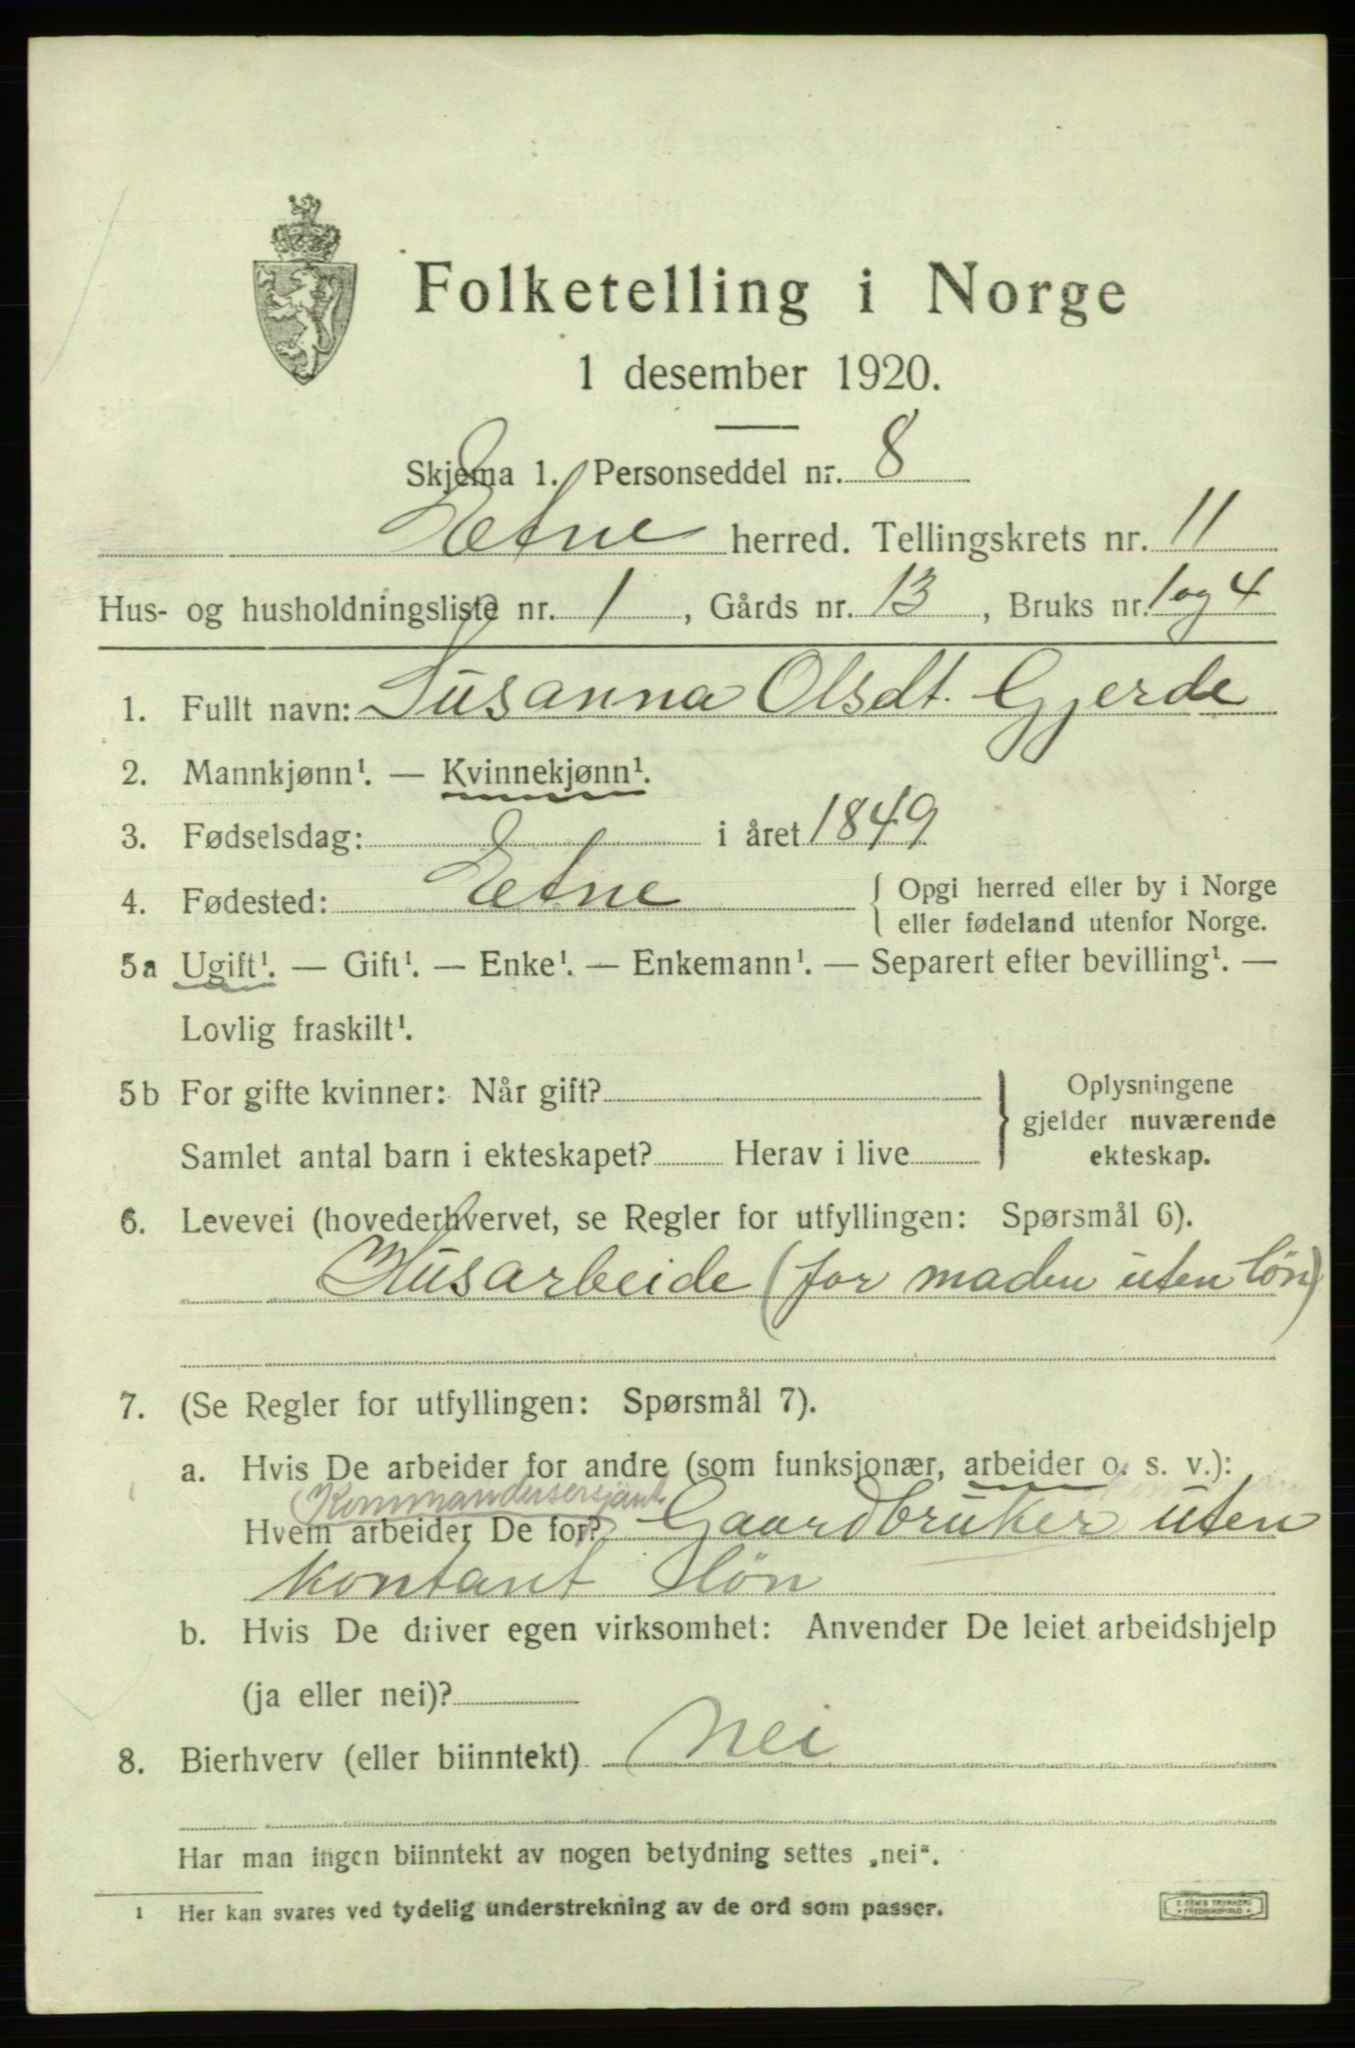 Folketelling i Norge
1 desember 1920.
Skjema 1. Personseddel nr. 8
Etne herred. Tellingskrets nr. 11
Hus- og husholdningsliste nr. 1, Gårds nr. 13, Bruks nr. 1 og 4
1. Fullt navn: Susanna Olsdt. Gjerde
2. Mannkjønn¹. — Kvinnekjønn¹.
3. Fødselsdag: i året 1849
4. Fødested: Etne { Opgi herred eller by i Norge
eller fødeland utenfor Norge.
5a Ugift¹. — Gift¹. — Enke¹. — Enkemann¹. — Separert efter bevilling¹. —
Lovlig fraskilt¹.
5b For gifte kvinner: Når gift? } Oplysningene
gjelder nuværende
Samlet antal barn i ekteskapet? Herav i live ekteskap.
6. Levevei (hovederhvervet, se Regler for utfyllingen: Spørsmål 6).
Husarbeide (for maden uten løn)
7. (Se Regler for utfyllingen: Spørsmål 7).
a. Hvis De arbeider for andre (som funksjonær, arbeider o. s. v.):
(Kommandersersjant)
Hvem arbeider De for? Gaardbruker uten
kontant løn
b. Hvis De driver egen virksomhet: Anvender De leiet arbeidshjelp
(ja eller nei)?
8. Bierhverv (eller biinntekt) Nei
Har man ingen biinntekt av nogen betydning settes „nei“.
¹ Her kan svares ved tydelig understrekning av de ord som passer.